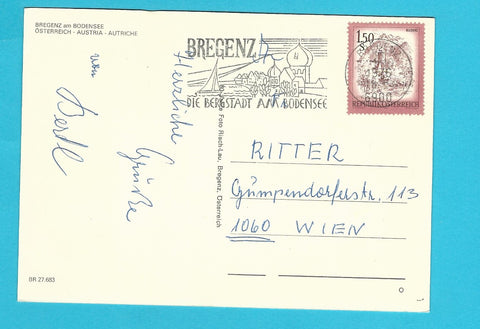 BREGENZ am BODENSEE
ÖSTERREICH - AUSTRIA - AUTRICHE
Herzliche
Grüße
von
Bertl
BR 27.683
Foto Risch-Lau, Bregenz, Österreich
BREGENZ
DIE BERGSTADT AM BODENSEE
6900
1.50
REPUBLIK ÖSTERREICH
RITTER
Gumpendorferstr. 113
1060 WIEN